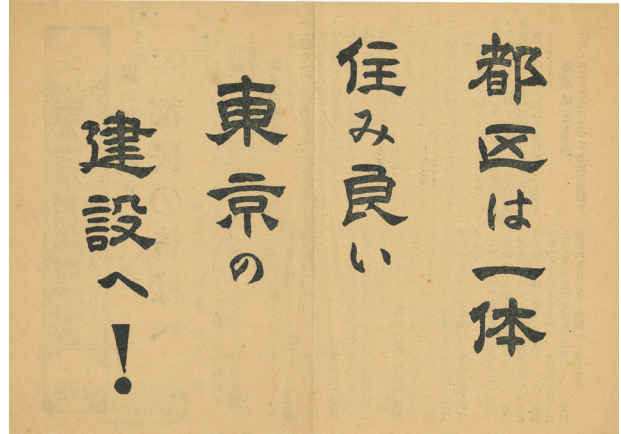 都区は一体
住み良い
東京の
建設へ!